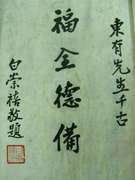 東有先生千古
福全德備
白崇禧敬題